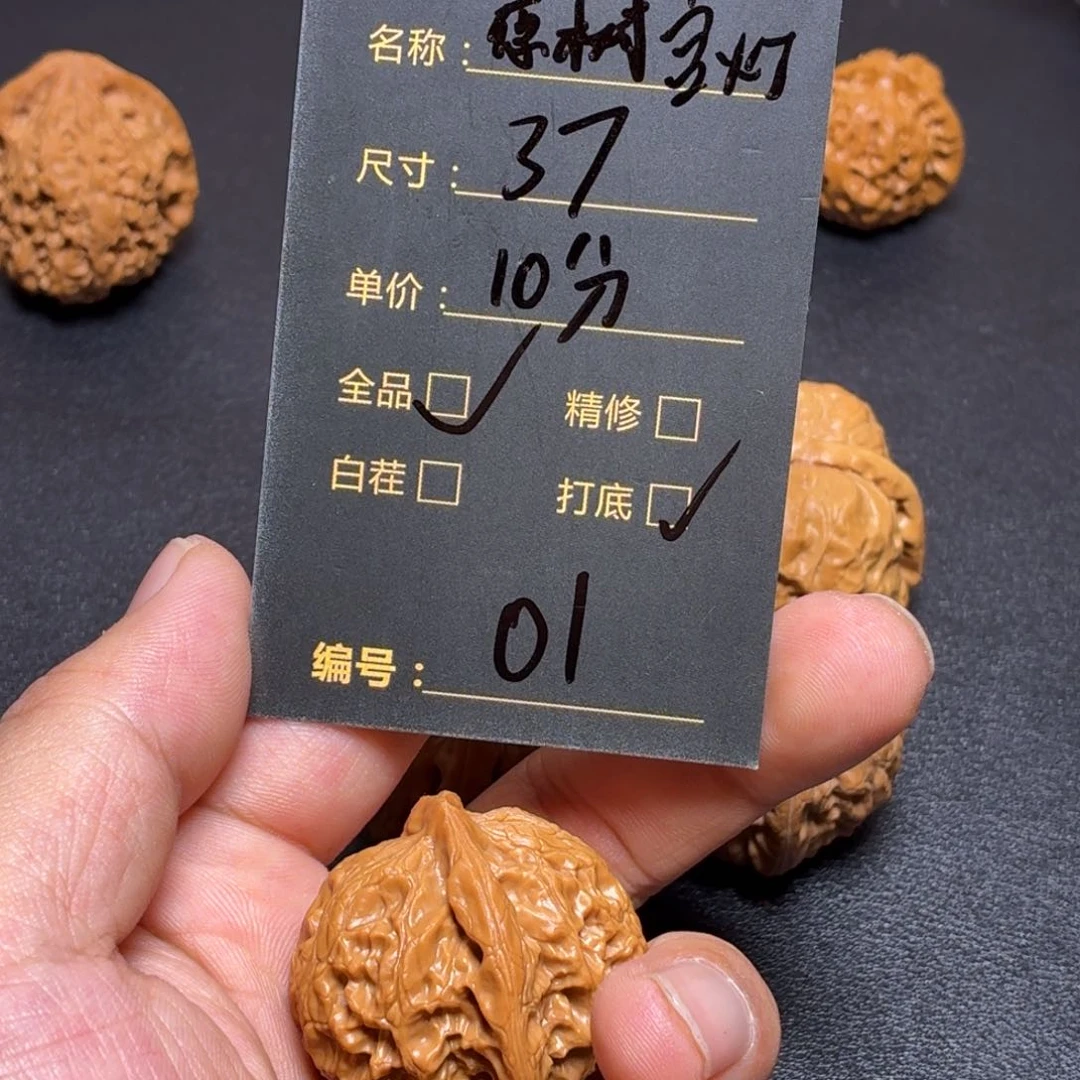 名称：原树宝灯
尺寸：37
单价：10分
全品 精修
白茬 打底
编号：01